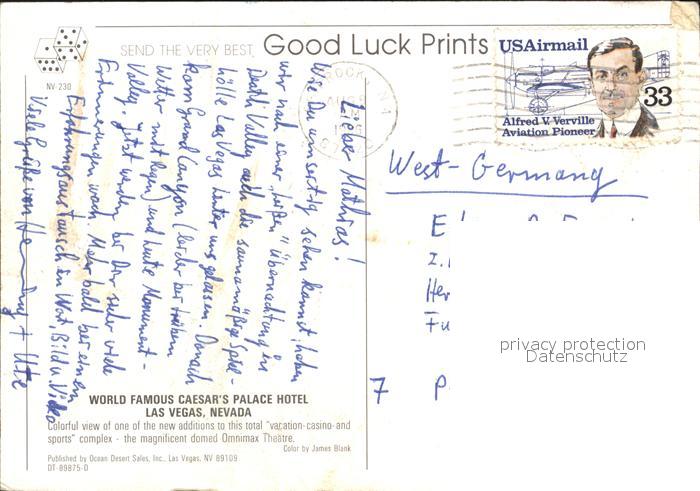 SEND THE VERY BEST, Good Luck Prints
NV-230
USAirmail
33
Alfred V. Verville
Aviation Pioneer
Lieber Mathias!
Wie Du umseitig sehen kannst, haben
wir nach einer "heißen" Übernachtung in
Death Valley auch die saumäßige Spiel-
hölle Las Vegas hinter uns gelassen. Danach
kam Grand Canyon (leider bei trübem
Wetter mit Regen) und heute Monument-
Valley. Jetzt werden bei Dir sicher viele
Erinnerungen wach. Mehr bald bei einem
Erfahrungsaustausch in Wort, Bild u. Video
Viele Grüße von + Ute
West-Germany
E
I.
Her
Fu
7 P
privacy protection
Datenschutz
WORLD FAMOUS CAESAR'S PALACE HOTEL
LAS VEGAS, NEVADA
Colorful view of one of the new additions to this total "vacation-casino-and
sports" complex - the magnificent domed Omnimax Theatre.
Color by James Blank
Published by Ocean Desert Sales, Inc., Las Vegas, NV 89109
DT-89875-D